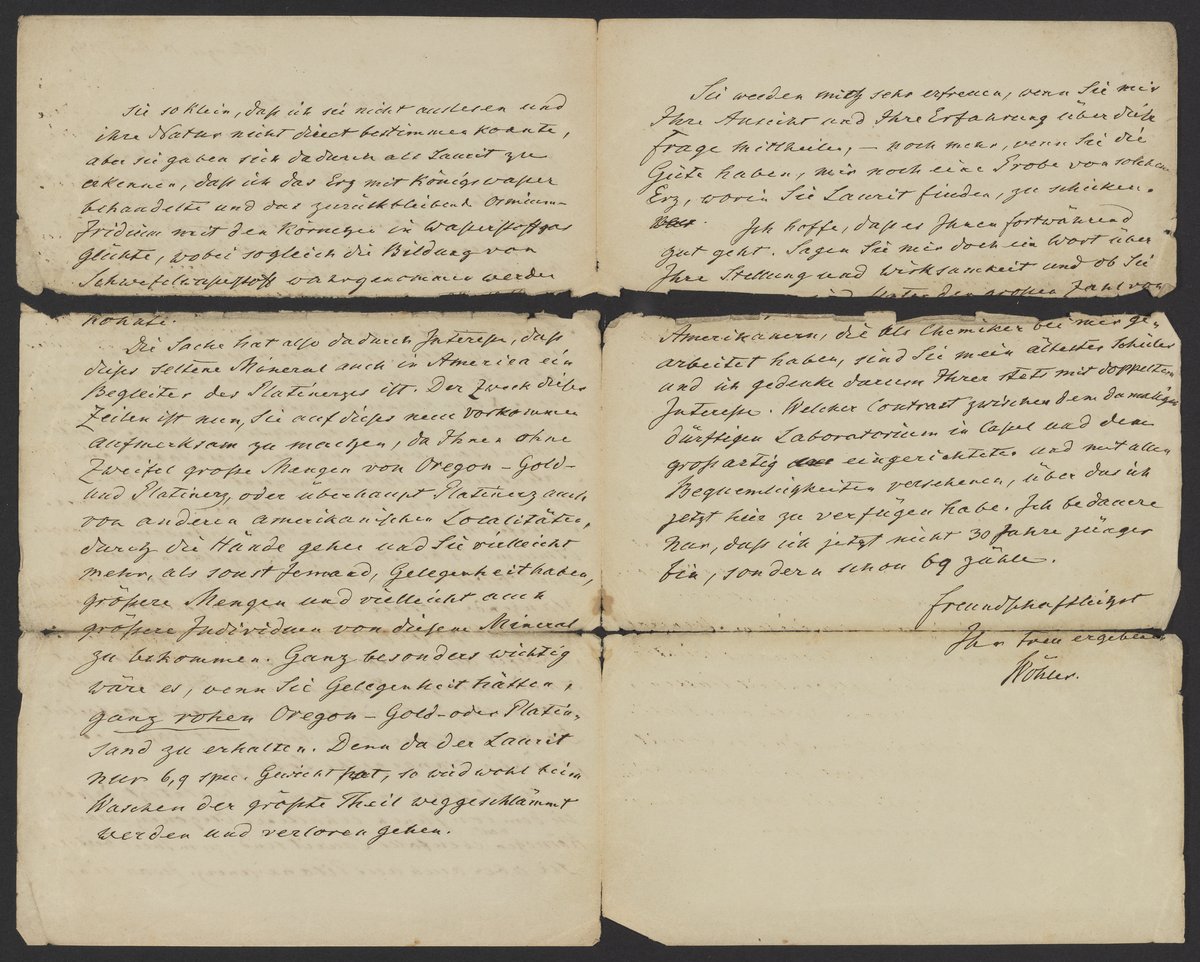 Sie so klein, daß ich sie nicht auslesen und
ihre Natur nicht direct bestimmen konnte,
aber sie gaben sich dadurch als Laurit zu
erkennen, daß ich das Erz mit Königswasser
behandelte und das zurückbleibende Osmium-
Iridium mit den Körnchen in Wasserstoffgas
glühte, wobei sogleich die Bildung von
Schwefelwasserstoff wahrgenommen werden
konnte.
Die Sache hat also dadurch Interesse, daß
dieses seltene Mineral auch in America ein
Begleiter des Platinerzes ist. Der Zweck dieser
Zeilen ist nun, Sie auf dieses neue Vorkommen
aufmerksam zu machen, da Ihnen ohne
Zweifel große Mengen von Oregon-Gold-
und Platinerz, oder überhaupt Platinerz auch
von anderen amerikanischen Localitäten,
durch die Hände gehen und Sie vielleicht
mehr, als sonst Jemand, Gelegenheit haben,
größere Mengen und vielleicht auch
größere Individuen von diesem Mineral
zu bekommen. Ganz besonders wichtig
wäre es, wenn Sie Gelegenheit hätten,
ganz rohen Oregon-Gold- oder Platin-
sand zu erhalten. Denn da der Laurit
nur 6,9 spec. Gewicht hat, so wird wohl beim
Waschen der größte Theil weggeschlämmt
werden und verloren gehen.
Sie werden mich sehr erfreuen, wenn Sie mir
Ihre Ansicht und Ihre Erfahrung über diese
Frage mittheilen, – noch mehr, wenn Sie die
Güte haben, mir noch eine Probe von solchem
Erz, worin Sie Laurit finden, zu schicken.
Ich hoffe, daß es Ihnen fortwährend
gut geht. Sagen Sie mir doch ein Wort über
Ihre Stellung und Wirksamkeit und ob Sie
sind. Unter der großen Zahl von
Amerikanern, die als Chemiker bei mir ge-
arbeitet haben, sind Sie mein ältester Schüler
und ich gedenke darum Ihrer stets mit doppeltem
Interesse. Welcher Contrast zwischen dem damaligen
dürftigen Laboratorium in Cassel und dem
großartig eingerichteten und mit allen
Bequemlichkeiten versehenen, über das ich
jetzt hier zu verfügen habe. Ich bedauere
nur, daß ich jetzt nicht 30 Jahre jünger
bin, sondern schon 69 zähle.
Freundschaftlichst
Ihr treu ergebener
Wöhler.